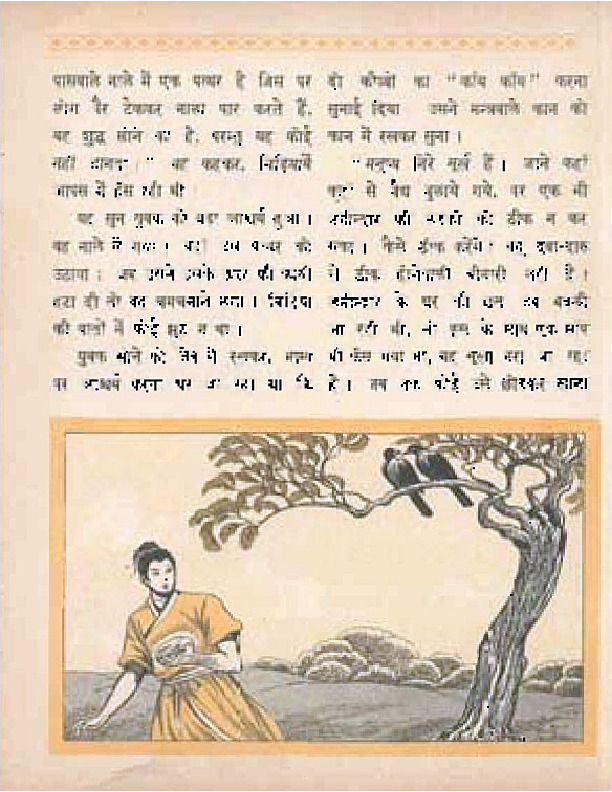 पासवाले नाले में एक पत्थर है जिस पर
लोग पैर टेककर नाला पार करते हैं.
वह शुद्ध सोने का है, परन्तु यह कोई
नहीं जानता।" यह कहकर, चिड़ियायें
आपस में हँस रही थीं
यह सुन युवक को बड़ा आश्चर्य हुआ।
वह नाले में गया। वहाँ उस पत्थर को
उठाया। जब उसने उसके ऊपर की
हटा दी तो वह चमचमाने लगा। चिड़ियों
की बातों में कोई झूट न था।
युवक सोने को जेब में रखकर,
पर आश्चर्य करता घर जा रहा था कि
दो कौव्वों का "काँय काँय" करना
सुनाई दिया उसने मन्त्रवाले कान को
कान में रखकर सुना।
"मनुष्य निरे मूर्ख हैं। जाने कहाँ
कहाँ से वैद्य बुलाये गये, पर एक भी
जमीन्दार की लड़की को ठीक न कर
सका। कैसे ठीक करेंगे? वह दवा-दारु
से ठीक होनेवाली बीमारी नहीं है।
जमीन्दार के घर की छत जब
जा रही थी, तो फूस के साथ एक साँप
भी फँस गया था, वह भूखा मरा जा रहा
है। जब तक कोई उसे छोड़कर खाना